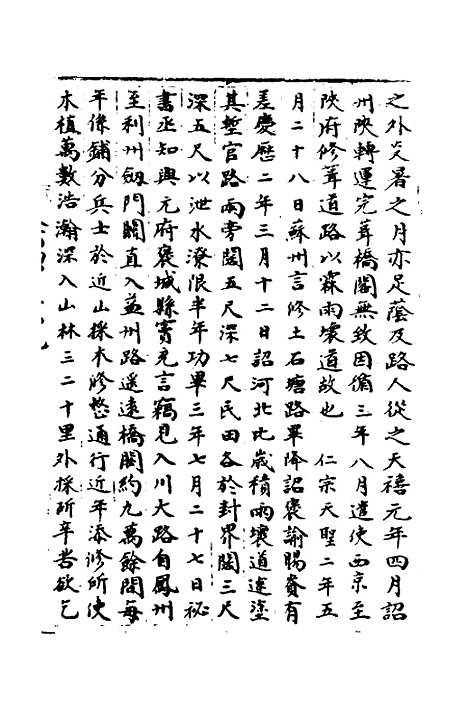 之外炎暑之月亦足蔭及路人從之天禧元年四月詔
州陜轉運完葺橋閣無致因循三年八月遣使西京至
陜府修葺道路以霖雨壞道故也　仁宗天聖二年五
月二十八日蘇州言修土石塘路畢降詔褒諭賜賚有
差慶歷二年三月十二日詔河北比歲積雨壞道途塗
其塹官路兩旁闊五尺深七尺民田各於封界闊三尺
深五尺以泄水潦限半年功畢三年七月二十七日祕
書丞知興元府褒城縣竇充言竊見入川大路自鳳州
至利州劔門關直入益州路遥遠橋閣約九萬餘間每
年係鋪分兵士於近山採木修整通行近年添修所使
木植萬數浩瀚深入山林三二十里外採斫辛苦欲乞